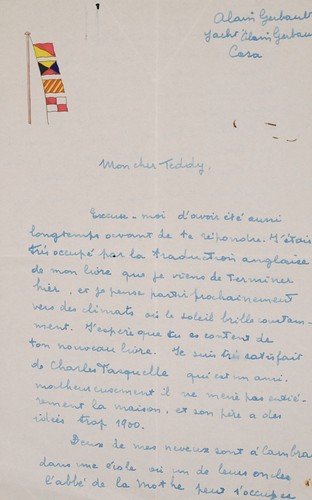 Alain Gerbault
Yacht "Alain Gerbau
Casa
Mon cher Teddy.
Excuse-moi d'avoir été aussi
longtemps avant de te répondre. J'étais
très occupé par la traduction anglaise
de mon livre que je viens de terminer
hier, et je pense partir prochainement
vers des climats où le soleil brille constam-
ment. J'espère que tu es content de
ton nouveau livre. Je suis très satisfait
de Charles Fasquelle qui est un ami.
malheureusement il ne mène pas entiè-
rement la maison, et son père a des
idées trop 1900.
Deux de mes neveux sont à Cambrai
dans une école où un de leurs oncles
l'abbé de la Mothe peut s'occuper